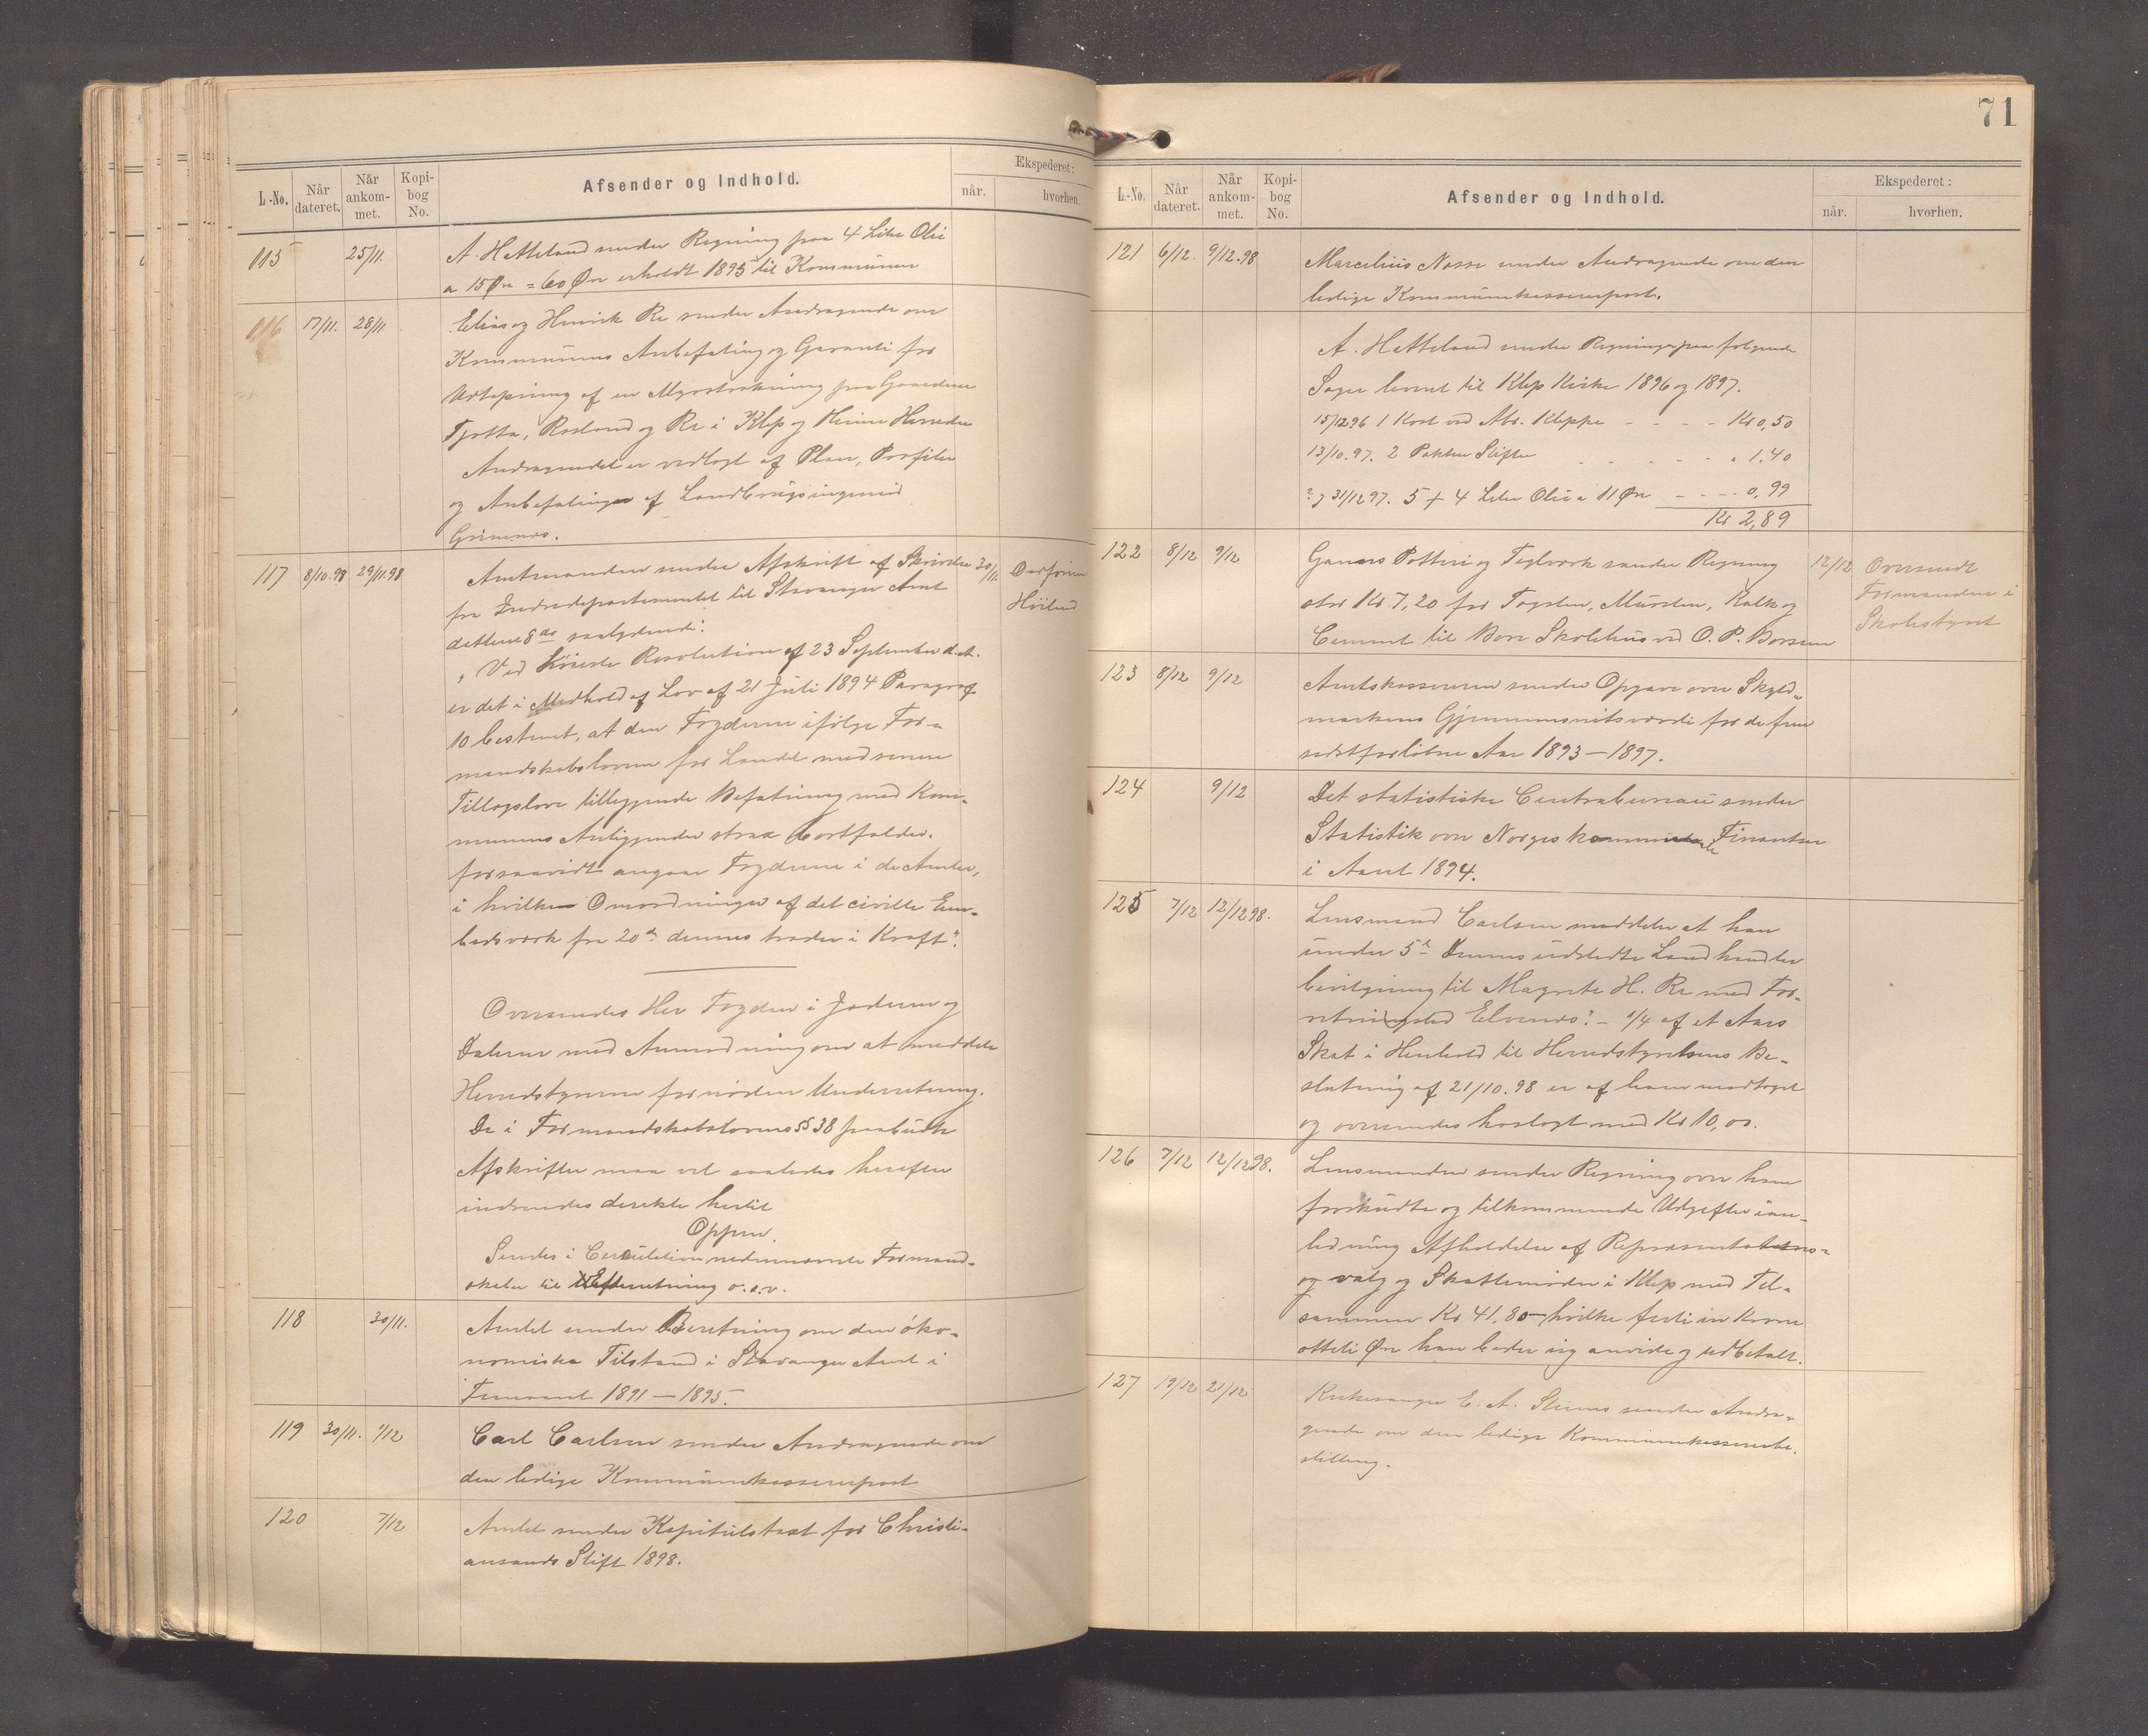 L.-No.
Når dateret.
Når ankom-met.
Kopi-bog No.
Afsender og Indhold.
Ekspederet:
når.
hvorhen.
115 25/11.
A. Hetteland sender Regning paa 4 Liter Olie
a 15 Øre = 60 Øre erholdt 1895 til Kommunen
116 17/11. 28/11
Elias og Henrik Re sender Andragende om
Kommunens Anbefaling og Garanti for
Udtapning af en Myrstrækning paa Gaardene
Tjøtta, Rosland og Re i Klep og Herreder
Andragendet er vedlagt af Plan, Profiler
og Anbefalinger af Landbrugsingeniør
Grimnes.
117 8/10.98 29/11.98
Amtmanden sender Afskrift af Skrivelse 30/11
fra Indredepartementet til Stavanger Amt
dettens 8de saalydende:
"Ved Høieste Resolution af 23 September d. A.
er det i Medhold af Lov af 21 Juli 1894 Paragraf
10 bestemt, at den Fogderne ifølge For-
mandskabsloven for Landet med senere
Tillægslove tilliggende Befatning med Kom-
munens Anliggender strax bortfalder.
forsaavidt angaar Fogderne i de Amter,
i hvilke Omordningen af det civille Em-
bedsværk fra 20de dennes træder i Kraft".
Oversendes Her Fogden i Jæderen og
Dalerne med Anmodning om at meddele
Herredstyrerne fornøden Underretning.
De i Formandskabslovens §§ 38 paabudte
Afskrifter maa vel saaledes herefter
indsendes direkte hertil
Oppen.
Sendes i Circulation nedennævnte Formænd-
skaber til Efterretning o.s.v.
118 30/11.
Amtet sender Beretning om den øko-
nomiske Tilstand i Stavanger Amt i
Femaaret 1891 — 1895.
119 30/11. 1/12
Carl Carlsen sender Andragende om
den ledige Kommunekassererpost
120 7/12
Amtet sender Kapitulstaxt for Christi-
ansands Stift 1898.
71
L.-No.
Når dateret.
Når ankom-met.
Kopi-bog No.
Afsender og Indhold.
Ekspederet:
når.
hvorhen.
121 6/12. 9/12.98
Marcelius Nesse sender Andragende om den
ledige Kommunekassererpost.
A. Hetteland sender Regning paa følgende
Sager leveret til Klep Kirke 1896 og 1897.
15/12 96 1 Kost ved Abr. Kleppe - - - - Kr 0,50
13/10.97. 2 Pakker Stifter . . . . . . " 1.40
? og 31/12 97. 5 + 4 Liter Olie a 11 Øre - - - - 0,99
Kr 2,89
122 8/12 9/12
Ganns Potteri og Teglværk sender Regning 12/12 Oversendt
stor Kr 7,20 for Tagsten, Mursten, Kalk og Formanden i
Cement til Bore Skolehus ved O. P. Borsem Skolestyret
123 8/12 9/12
Amtskassereren sender Opgave over Skyld-
markens Gjennemsnitsværdi for de fem
sidstforløbne Aar 1893 — 1897.
124 9/12
Det statistiske Centralbureau sender
Statistik over Norges kommunale Finantser
i Aaret 1894.
125 7/12 12/12 98.
Lensmand Carlsen meddeler at han
under 5te Dennes udstedte Landhandler
bevilgning til Magrete H. Re med For-
retningsted Elvenes". — 1/4 af et Aars
Skat i Henhold til Herredstyrelsens Be-
slutning af 21/10.98 er af ham modtaget
og oversendes hoslagt med Kr 10,00.
126 7/12 12/12 98.
Lensmanden sender Regning over ham
forskudte og tilkommende Udgifter ian-
ledning Afholdelse af Repræsentations-
og valg og Skattemøder i Klep med Til-
sammen Kr 41.80 hvilke firti en Krone
otteti Øre han beder sig anvist og udbetalt.
127 19/12 21/12
Kirkesanger E. A. Stenes sender Andra-
gende om den ledige Kommunekassererbe-
stilling.